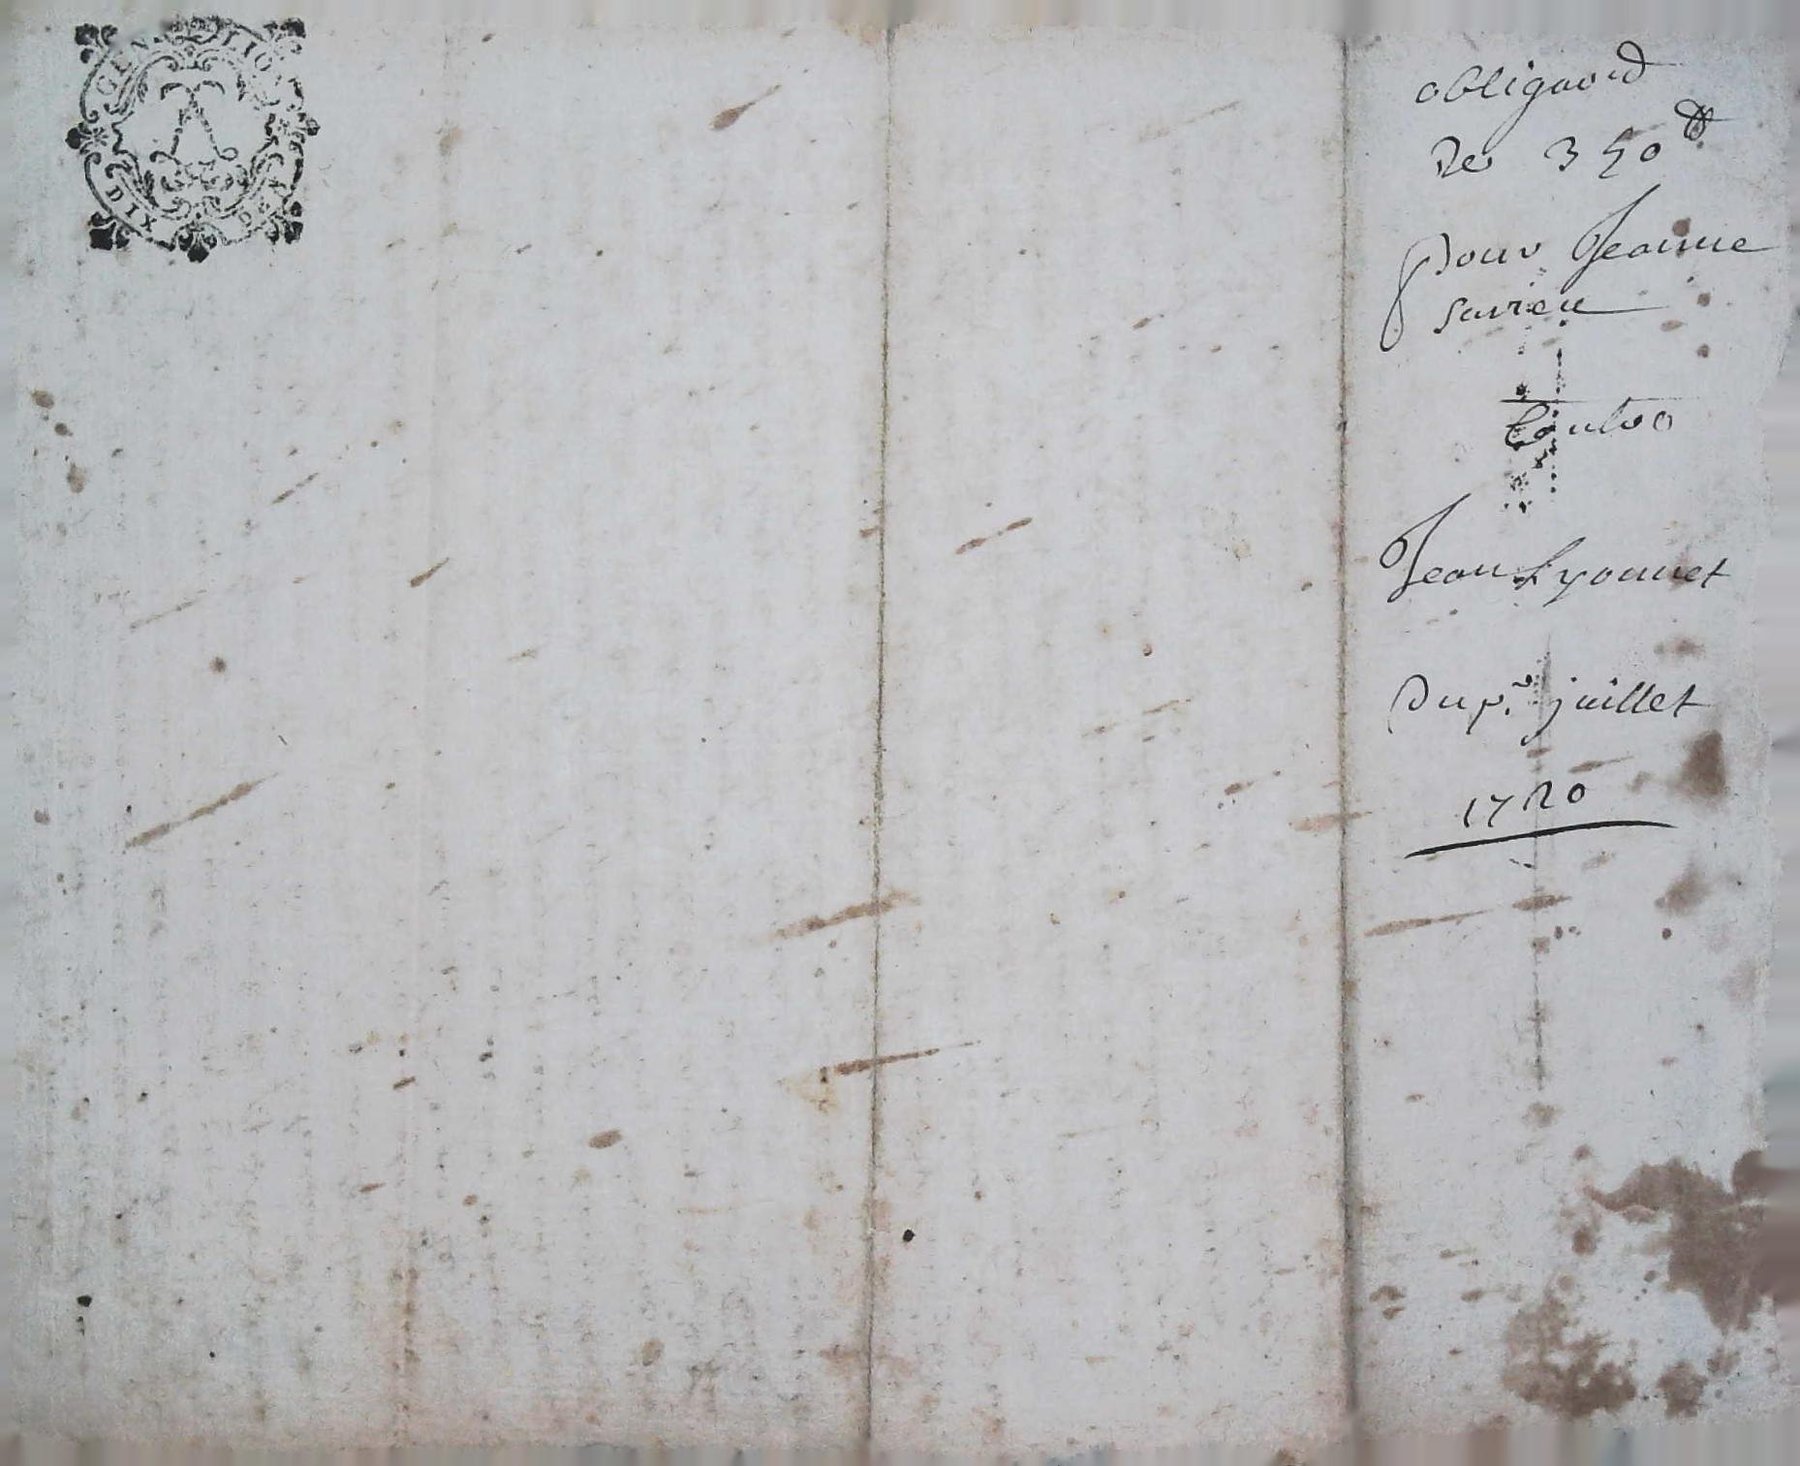 GEN LION
DIX DEN
obligaōn
de 350 ₶
pour Jeanne
savieu
Contre
Jean Lyonnet
Du pr juillet
1720